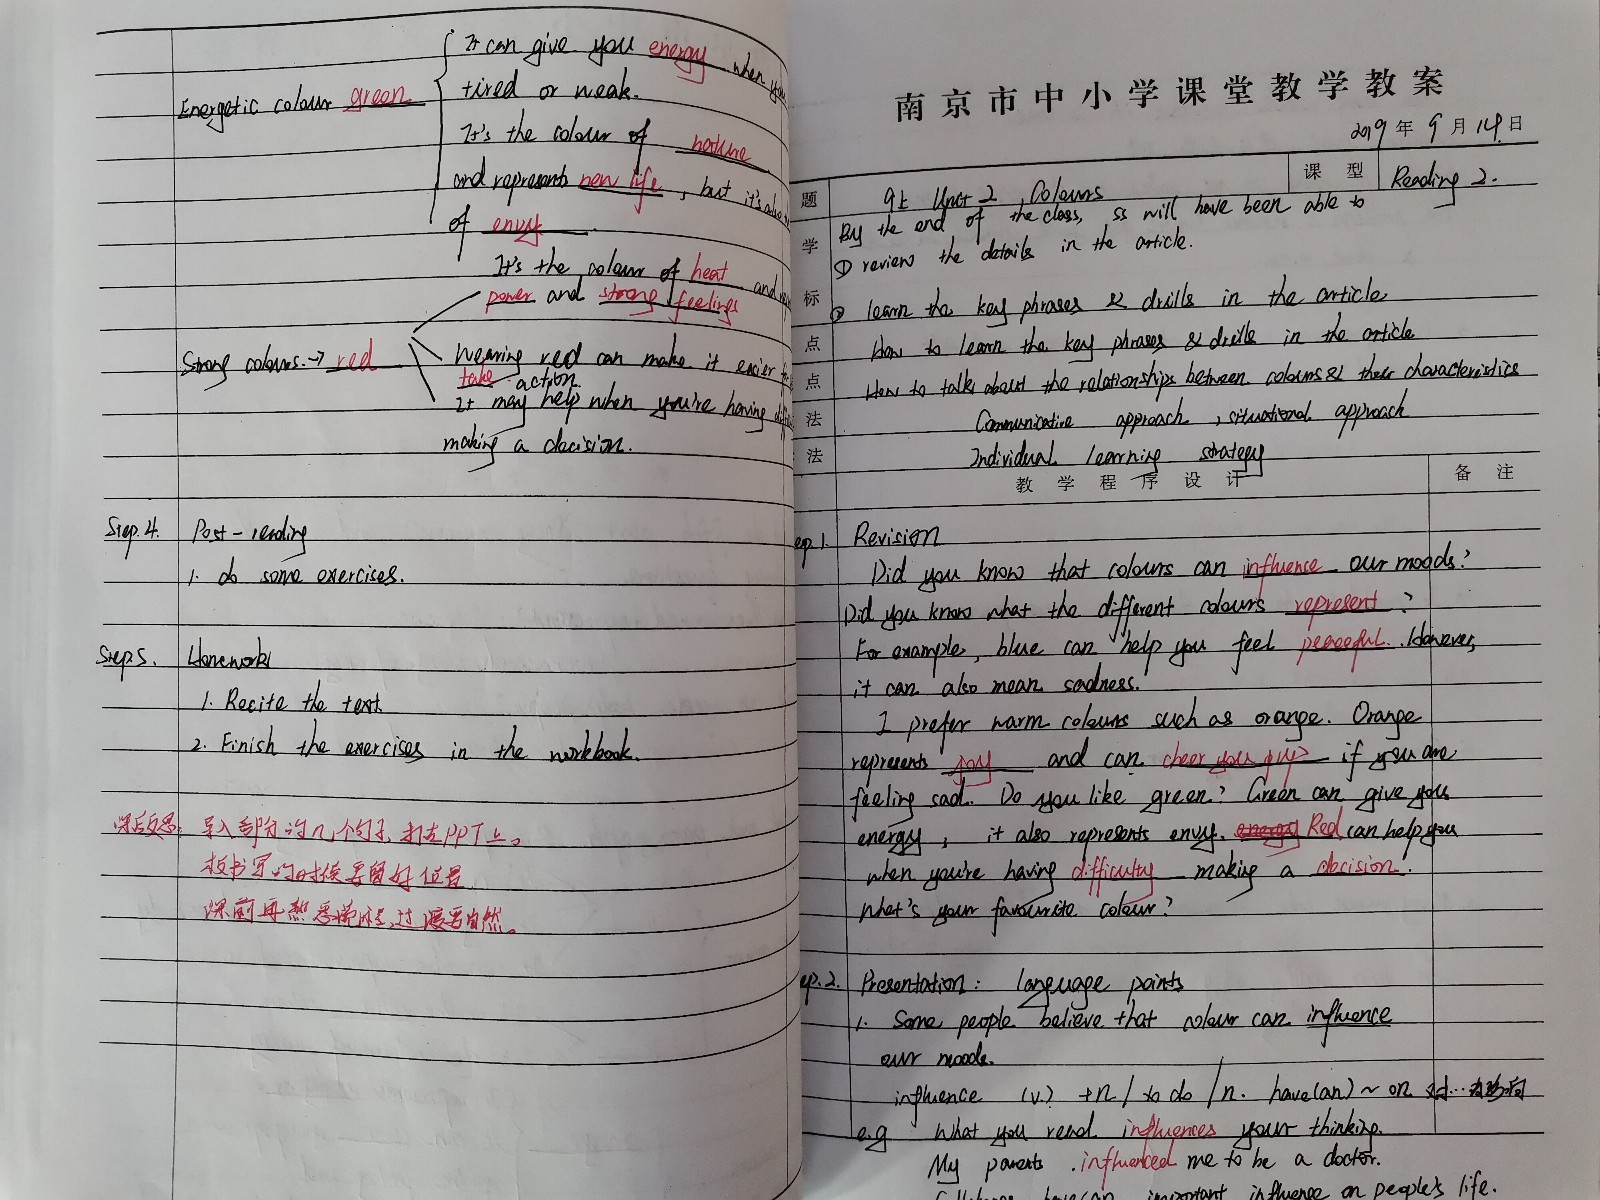 It can give you energy when you
Energetic colour green
tired or weak.
It's the colour of nature
and represents new life, but it's also
of envy.
It's the colour of heat and
power and strong feelings
Strong colours. → red
Wearing red can make it easier
take action.
It may help when you're having
making a decision.
Step 4. Post-reading
1. do some exercises.
Step 5. Homework
1. Recite the text
2. Finish the exercises in the workbook.
课后反思: 导入部分的几个句子, 打在PPT上。
板书写的时候要留好位置
课前再熟悉流程, 过渡要自然。
南京市中小学课堂教学教案
2019年9月14日
题 9上 Unit 2 Colours 课型 Reading 2.
学 By the end of the class, ss will have been able to
① review the details in the article.
标 ② learn the key phrases & drills in the article
点 How to learn the key phrases & drills in the article
点 How to talk about the relationships between colours & their characteristics
法 Communicative approach, situational approach
法 Individual learning strategy
教学程序设计 备注
ep 1. Revision
Did you know that colours can influence our moods?
Did you know what the different colours represent?
For example, blue can help you feel peaceful. However,
it can also mean sadness.
I prefer warm colours such as orange. Orange
represents joy and can cheer you up if you are
feeling sad. Do you like green? Green can give you
energy, it also represents envy. energy Red can help you
when you're having difficulty making a decision.
What's your favourite colour?
ep. 2. Presentation: language points
1. Some people believe that colour can influence
our moods.
influence (v.) +n / to do / n. have (an) ~ on 对…有影响
e.g What you read influences your thinking.
My parents influenced me to be a doctor.
have (an) important influence on people's life.